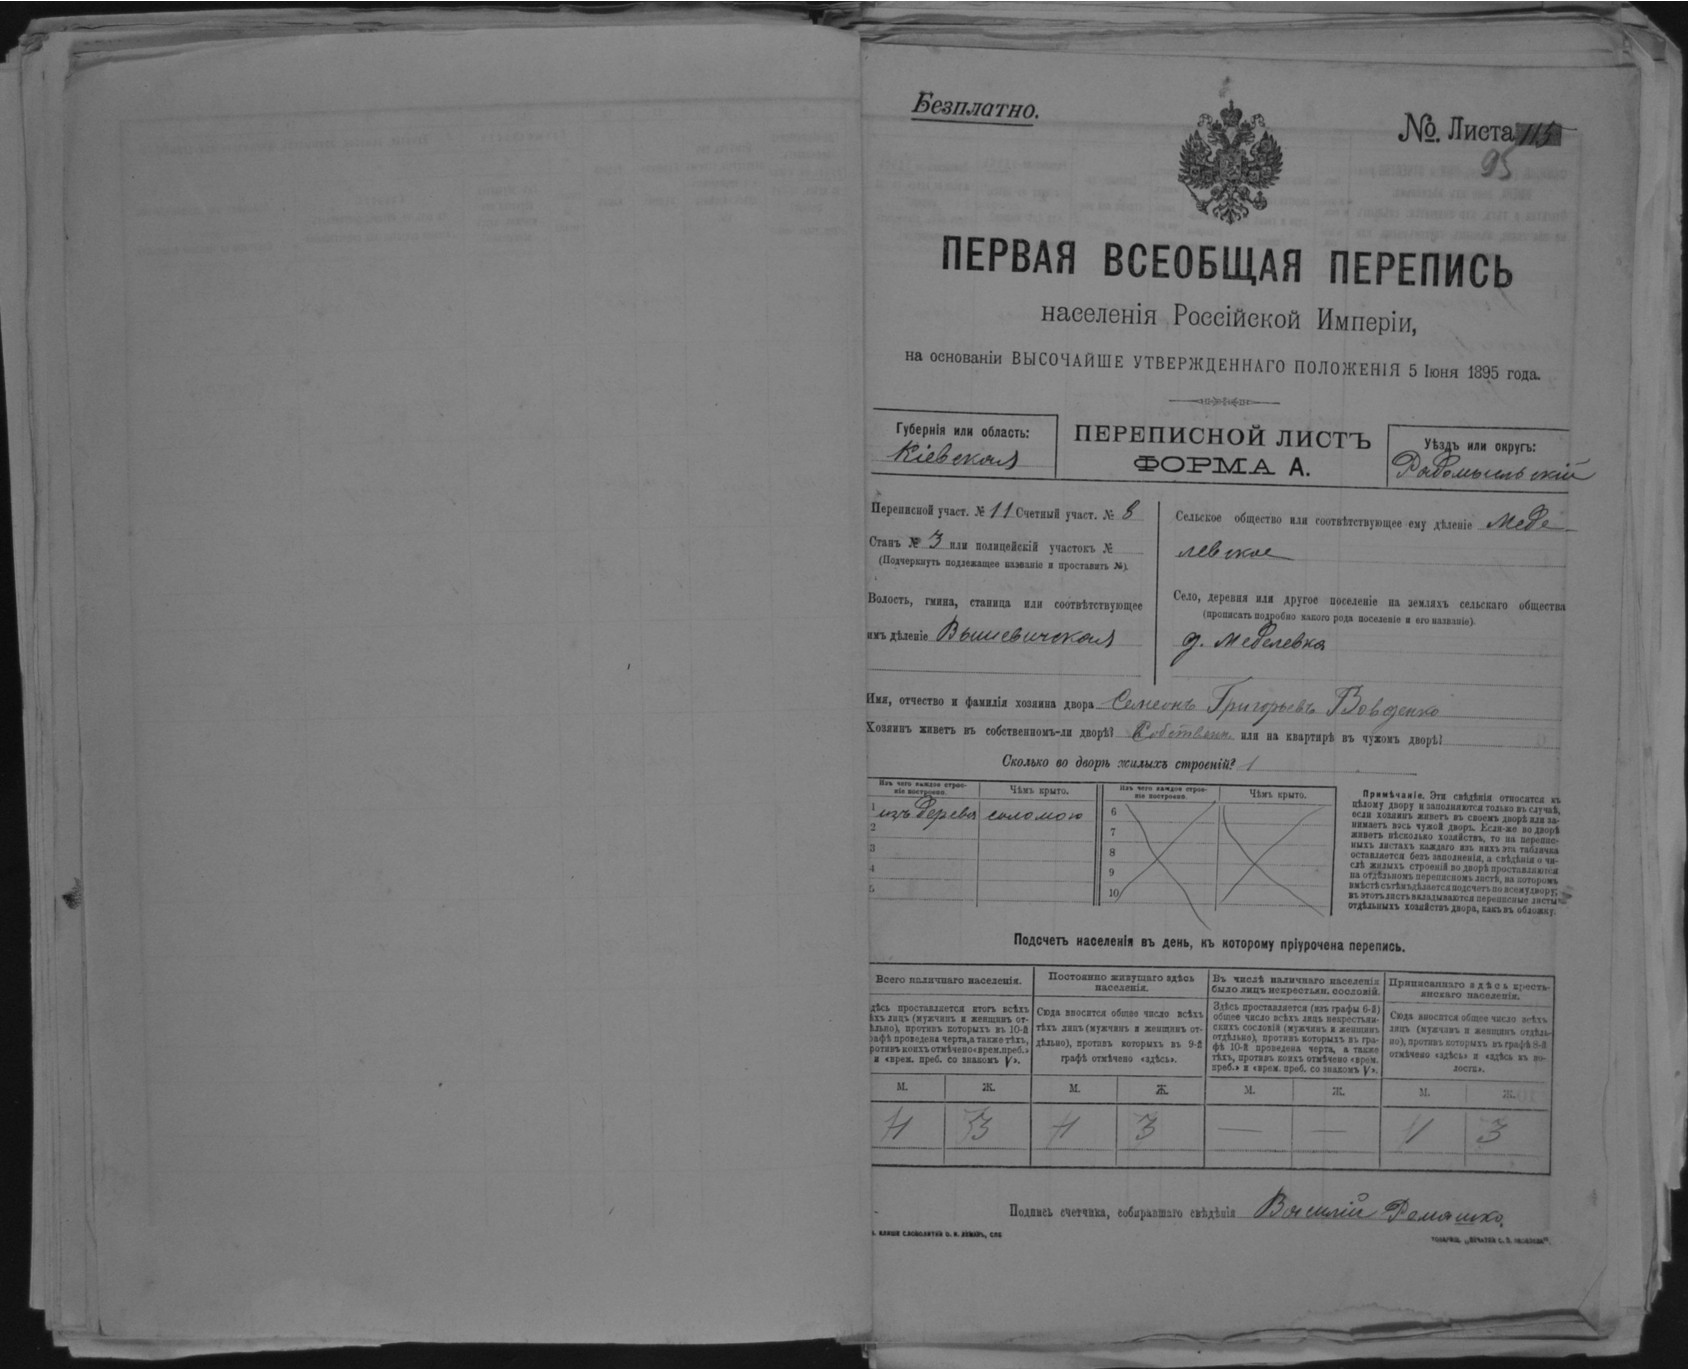 Безплатно.
№. Листа 115
95
ПЕРВАЯ ВСЕОБЩАЯ ПЕРЕПИСЬ
населенія Россійской Имперіи,
на основаніи ВЫСОЧАЙШЕ УТВЕРЖДЕННАГО ПОЛОЖЕНІЯ 5 Іюня 1895 года.
Губернія или область:
Кіевская
ПЕРЕПИСНОЙ ЛИСТЪ
ФОРМА А.
Уѣздъ или округъ:
Радомысльскій
Переписной участ. № 11 Счетный участ. № 8
Станъ № 3 или полицейскій участокъ №
(Подчеркнуть подлежащее названіе и проставить №).
Волость, гмина, станица или соотвѣтствующее
имъ дѣленіе Вышевичская
Сельское общество или соотвѣтствующее ему дѣленіе Меде-
левское
Село, деревня или другое поселеніе на земляхъ сельскаго общества
(прописать подробно какого рода поселеніе и его названіе).
д. Меделевка
Имя, отчество и фамилія хозяина двора Семенъ Григорьевъ Вовденко
Хозяинъ живетъ въ собственномъ-ли дворѣ? Собствен. или на квартирѣ въ чужомъ дворѣ?
Сколько во дворѣ жилыхъ строеній? 1
Изъ чего каждое строе-
ніе построено.
Чѣмъ крыто.
Изъ чего каждое строе-
ніе построено.
Чѣмъ крыто.
1 изъ дерева соломою
2
3
4
5
6
7
8
9
10
Примѣчаніе. Эти свѣдѣнія относятся къ
цѣлому двору и заполняются только въ случаѣ,
если хозяинъ живетъ въ своемъ дворѣ или за-
нимаетъ весь чужой дворъ. Если-же во дворѣ
живетъ нѣсколько хозяйствъ, то на перепис-
ныхъ листахъ каждаго изъ нихъ эта табличка
оставляется безъ заполненія, а свѣдѣнія о чи-
слѣ жилыхъ строеній во дворѣ проставляются
на отдѣльномъ переписномъ листѣ, на которомъ
вмѣстѣ съ тѣмъ дѣлается подсчетъ по всему двору;
въ этотъ листъ вкладываются переписные листы
отдѣльныхъ хозяйствъ двора, какъ въ обложку.
Подсчетъ населенія въ день, къ которому пріурочена перепись.
Всего наличнаго населенія.
Постоянно живущаго здѣсь
населенія.
Въ числѣ наличнаго населенія
было лицъ некрестьян. сословій.
Приписаннаго здѣсь кресть-
янскаго населенія.
дѣсь проставляется итогъ всѣхъ
ѣхъ лицъ (мужчинъ и женщинъ от-
ѣльно), противъ которыхъ въ 10-й
рафѣ проведена черта, а также тѣхъ,
ротивъ коихъ отмѣчено «врем. преб.»
и «врем. преб. со знакомъ V».
Сюда вносится общее число всѣхъ
тѣхъ лицъ (мужчинъ и женщинъ от-
дѣльно), противъ которыхъ въ 9-й
графѣ отмѣчено «здѣсь».
Здѣсь проставляется (изъ графы 6-й)
общее число всѣхъ лицъ некрестьян-
скихъ сословій (мужчинъ и женщинъ
отдѣльно), противъ которыхъ въ гра-
фѣ 10-й проведена черта, а также
тѣхъ, противъ коихъ отмѣчено «врем.
преб.» и «врем. преб. со знакомъ V».
Сюда вносится общее число всѣхъ
лицъ (мужчинъ и женщинъ отдѣль-
но), противъ которыхъ въ графѣ 8-й
отмѣчено «здѣсь» и «здѣсь въ во-
лости».
М. Ж. М. Ж. М. Ж. М. Ж.
4 3 4 3 — — 4 3
Подпись счетчика, собиравшаго свѣдѣнія Василій Ромашко.